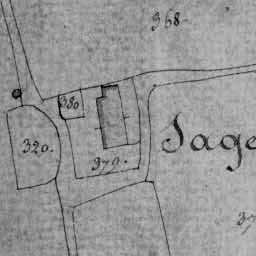 368.
380
320.
379.
Sage
37